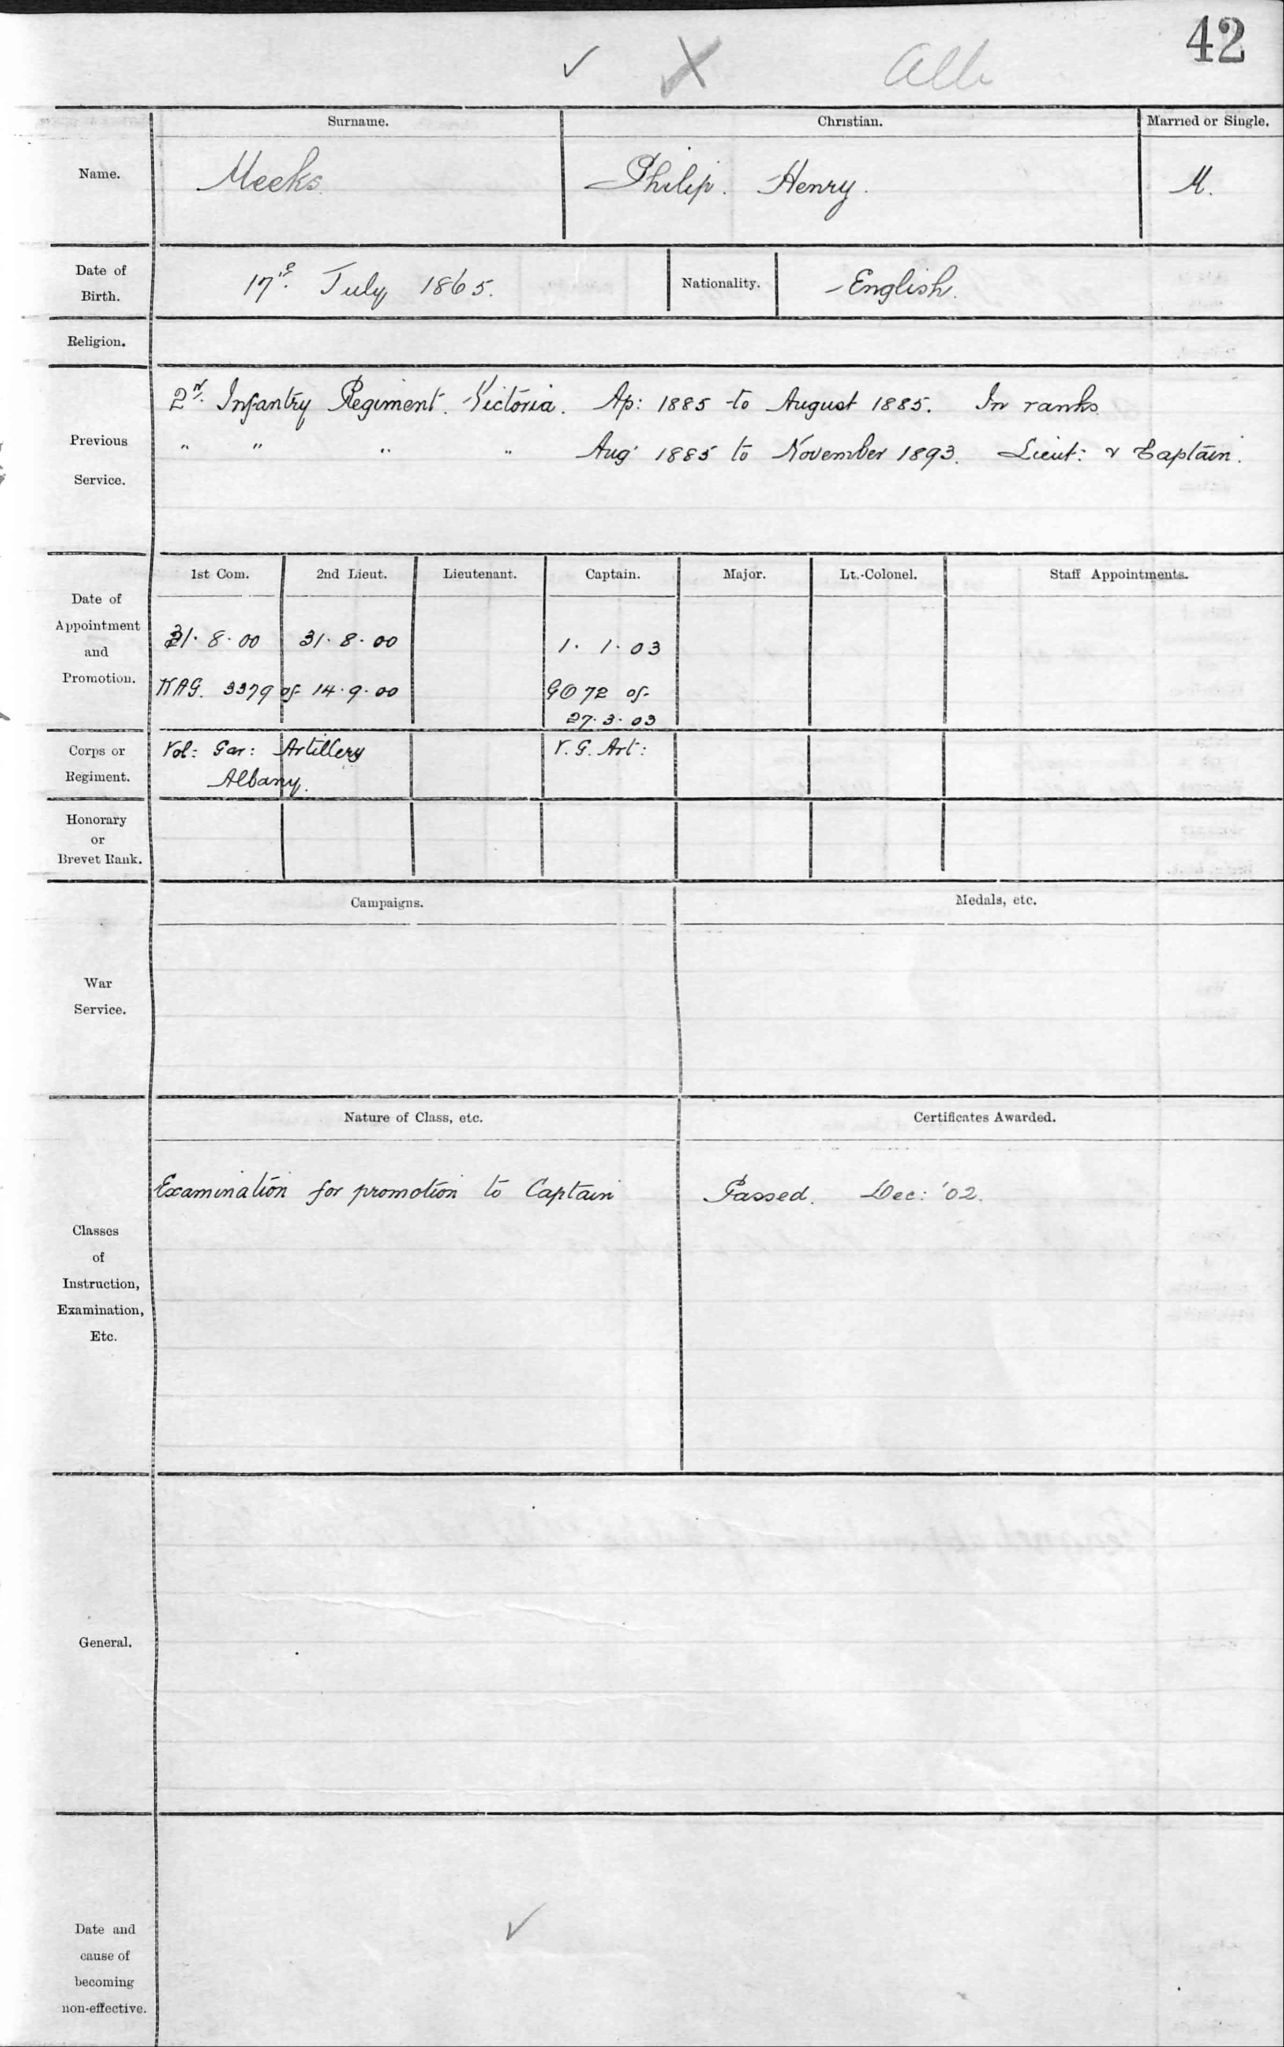 42
Surname. Christian. Married or Single.
Name. Meeks. Philip. Henry. M.
Date of Birth. 17th July 1865. Nationality. English.
Religion.
Previous Service.
2nd Infantry Regiment. Victoria. Ap: 1885 to August 1885. In ranks
" " " " Aug 1885 to November 1893. Lieut: & Captain.
Date of Appointment and Promotion.
1st Com. 2nd Lieut. Lieutenant. Captain. Major. Lt.-Colonel. Staff Appointments.
31. 8. 00 31. 8. 00 1. 1. 03
3379 of 14. 9. 00 GO 72 of
27. 3. 03
Corps or Regiment.
Vol: Gar: Artillery V. G. Art:
Albany.
Honorary or Brevet Rank.
War Service.
Campaigns. Medals, etc.
Classes of Instruction, Examination, Etc.
Nature of Class, etc. Certificates Awarded.
Examination for promotion to Captain Passed. Dec: '02.
General.
Date and cause of becoming non-effective.